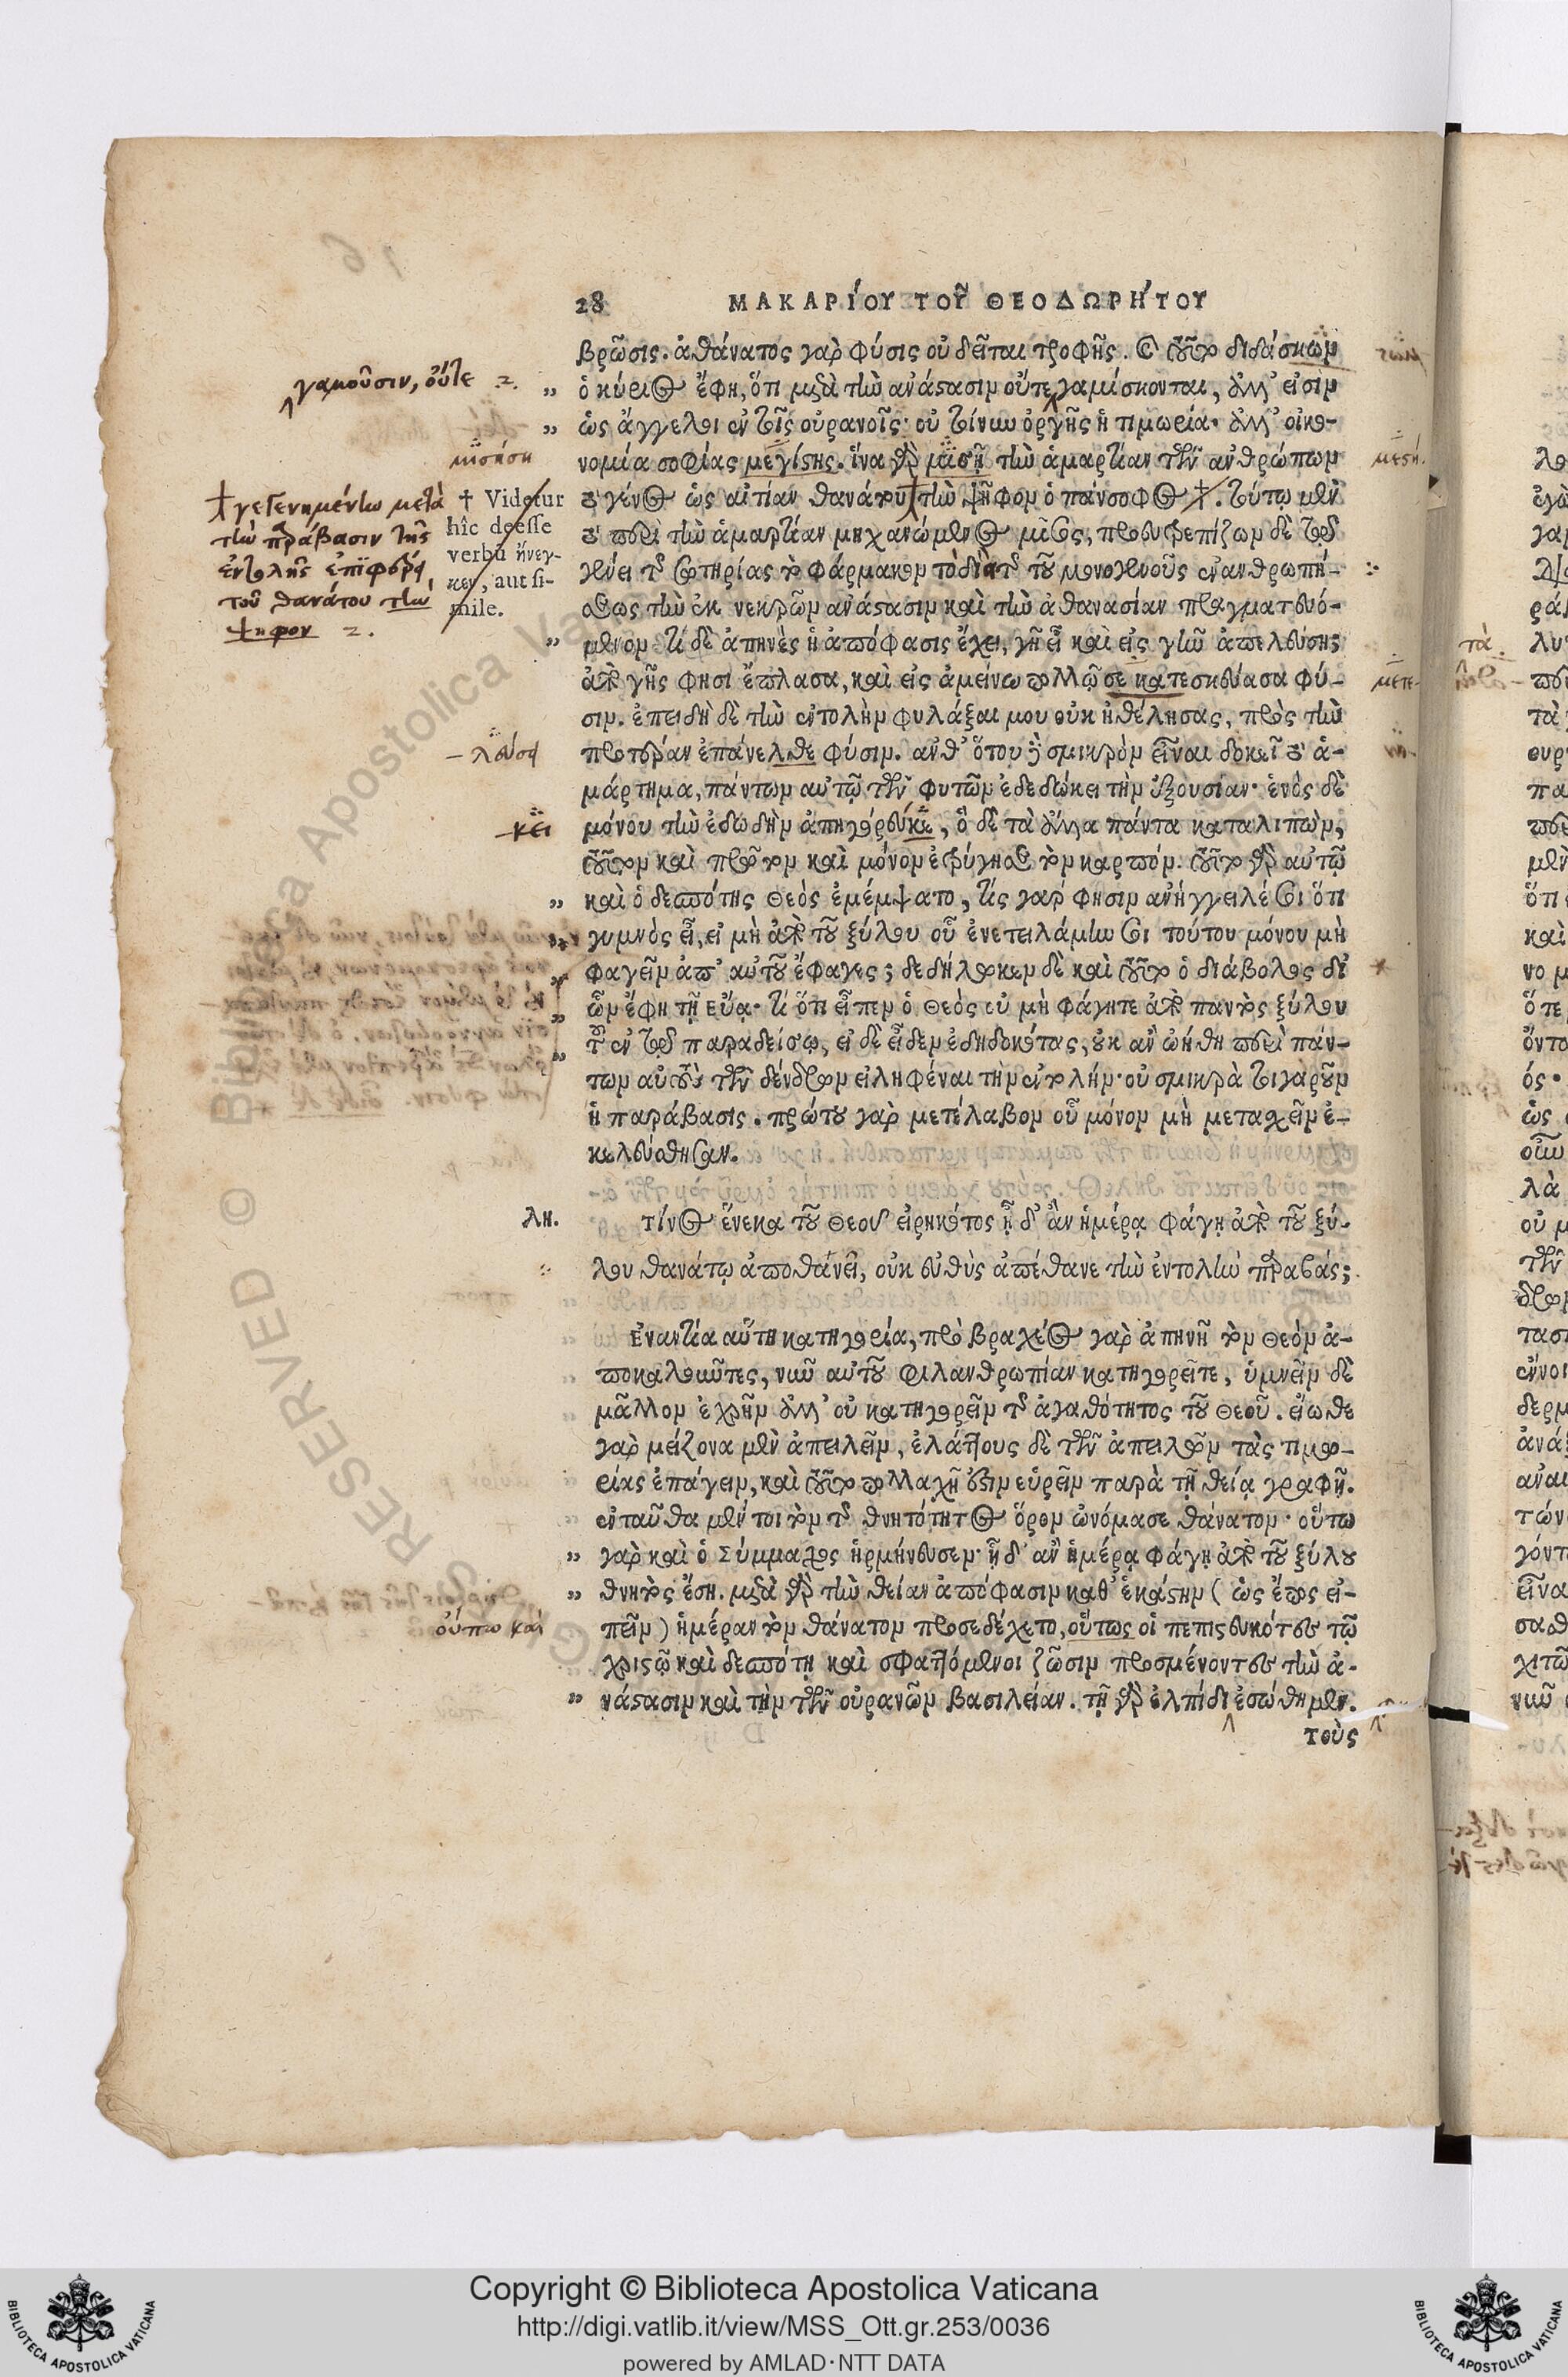 28 ΜΑΚΑΡΙΟΥ ΤΟΥ ΘΕΟΔΩΡΗΤΟΥ
βρῶσις. ἀθάνατος γὰρ φύσις οὐ δεῖται τροφῆς. καὶ τοῦτο διδάσκων
γαμοῦσιν, οὔτε
„ ὁ κύριος ἔφη, ὅτι μετὰ τὴν ἀνάστασιν οὔτε γαμίσκονται, ἀλλ' εἰσὶν
„ ὡς ἄγγελοι ἐν τοῖς οὐρανοῖς· οὐ τοίνυν ὀργῆς ἡ τιμωρία· ἀλλ' οἰκο-
μισήσῃ
νομία σοφίας μεγίστης. ἵνα γὰρ μισῇ τὴν ἁμαρτίαν τῶν ἀνθρώπων
τὸ γένος ὡς αἰτίαν θανάτου τὴν ψῆφον ὁ πάνσοφος †. τούτῳ μὲν
† γεγενημένην μετὰ
τὴν παράβασιν τῆς
ἐντολῆς ἐπιφέρει
τοῦ θανάτου τὴν
ψῆφον
† Videtur
hîc deesse
verbũ ἤνεγ-
κεν, aut si-
mile.
τὸ περὶ τὴν ἁμαρτίαν μηχανώμενος μῖσος, προευτρεπίζων δὲ τῷ
γένει τῆς σωτηρίας τὸ φάρμακον τὸ διὰ τῆς τοῦ μονογενοῦς ἐνανθρωπή-
σεως τὴν ἐκ νεκρῶν ἀνάστασιν καὶ τὴν ἀθανασίαν πραγματευό-
„ μενον. τί δὲ ἀπηνὲς ἡ ἀπόφασις ἔχει, γῆ εἶ καὶ εἰς γῆν ἀπελεύσῃ;
ἀπὸ γῆς φησὶ ἔπλασα, καὶ εἰς ἀμείνω πολλῷ σε κατεσκεύασα φύ-
μετε-
σιν. ἐπειδὴ δὲ τὴν ἐντολὴν φυλάξαι μου οὐκ ἠθέλησας, πρὸς τὴν
— λεύσῃ
προτέραν ἐπάνελθε φύσιν. ἀνθ' ὅτου γὰρ σμικρὸν εἶναι δοκεῖ τὸ ἁ-
μάρτημα, πάντων αὐτῷ τῶν φυτῶν ἐδεδώκει τὴν ἐξουσίαν· ἑνὸς δὲ
—κει
μόνου τὴν ἐδωδὴν ἀπηγόρευκε, ὁ δὲ τὰ ἄλλα πάντα καταλιπὼν,
τοῦτον καὶ πρῶτον καὶ μόνον ἐτρύγησε τὸν καρπόν. τοῦτο γὰρ αὐτῷ
„ καὶ ὁ δεσπότης Θεὸς ἐμέμψατο, τίς γάρ φησιν ἀνήγγειλέ σοι ὅτι
„ γυμνὸς εἶ, εἰ μὴ ἀπὸ τοῦ ξύλου οὗ ἐνετειλάμην σοι τούτου μόνου μὴ
„ φαγεῖν ἀπ' αὐτοῦ ἔφαγες; δεδήλωκεν δὲ καὶ τοῦτο ὁ διάβολος δι'
„ ὧν ἔφη τῇ Εὔᾳ· τί ὅτι εἶπεν ὁ Θεὸς οὐ μὴ φάγητε ἀπὸ παντὸς ξύλου
„ τοῦ ἐν τῷ παραδείσῳ, εἰ δὲ εἶδεν ἐδηδοκότας, οὐκ ἂν ᾠήθη περὶ πάν-
των αὐτοὺς τῶν δένδρων εἰληφέναι τὴν ἐντολήν· οὐ σμικρὰ τοιγαροῦν
ἡ παράβασις. πρώτου γὰρ μετέλαβον οὗ μόνον μὴ μετασχεῖν ἐ-
κελεύσθησαν.
λη. Τίνος ἕνεκα τοῦ Θεοῦ εἰρηκότος ᾗ δ' ἂν ἡμέρᾳ φάγῃ ἀπὸ τοῦ ξύ-
λου θανάτῳ ἀποθάνει, οὐκ εὐθὺς ἀπέθανε τὴν ἐντολὴν παραβάς;
Ἐναντία αὕτη κατηγορία, πρὸ βραχέος γὰρ ἀπηνῆ τὸν Θεὸν ἀ-
ποκαλοῦντες, νῦν αὐτοῦ φιλανθρωπίαν κατηγορεῖτε, ὑμνεῖν δὲ
μᾶλλον ἐχρῆν ἀλλ' οὐ κατηγορεῖν τῆς ἀγαθότητος τοῦ Θεοῦ. εἴωθε
γὰρ μείζονα μὲν ἀπειλεῖν, ἐλάττους δὲ τῶν ἀπειλῶν τὰς τιμω-
ρίας ἐπάγειν, καὶ τοῦτο πολλαχῆ ἔστιν εὑρεῖν παρὰ τῇ θείᾳ γραφῇ.
ἐνταῦθα μέν τοι τὸν τῆς θνητότητος ὅρον ὠνόμασε θάνατον· οὕτω
„ γὰρ καὶ ὁ Σύμμαχος ἡρμήνευσεν· ᾗ δ' ἂν ἡμέρᾳ φάγῃ ἀπὸ τοῦ ξύλου
„ θνητὸς ἔσῃ. μετὰ γὰρ τὴν θείαν ἀπόφασιν καθ' ἑκάστην (ὡς ἔπος εἰ-
οὕτω καὶ
πεῖν) ἡμέραν τὸν θάνατον προσεδέχετο, οὕτως οἱ πεπιστευκότες τῷ
χριστῷ καὶ δεσπότῃ καὶ σφαττόμενοι ζῶσιν προσμένοντες τὴν ἀ-
„ νάστασιν καὶ τὴν τῶν οὐρανῶν βασιλείαν. τῇ γὰρ ἐλπίδι ἐσώθημεν.
τοὺς
Copyright © Biblioteca Apostolica Vaticana
http://digi.vatlib.it/view/MSS_Ott.gr.253/0036
powered by AMLAD·NTT DATA
BIBLIOTECA APOSTOLICA VATICANA
BIBLIOTECA APOSTOLICA VATICANA